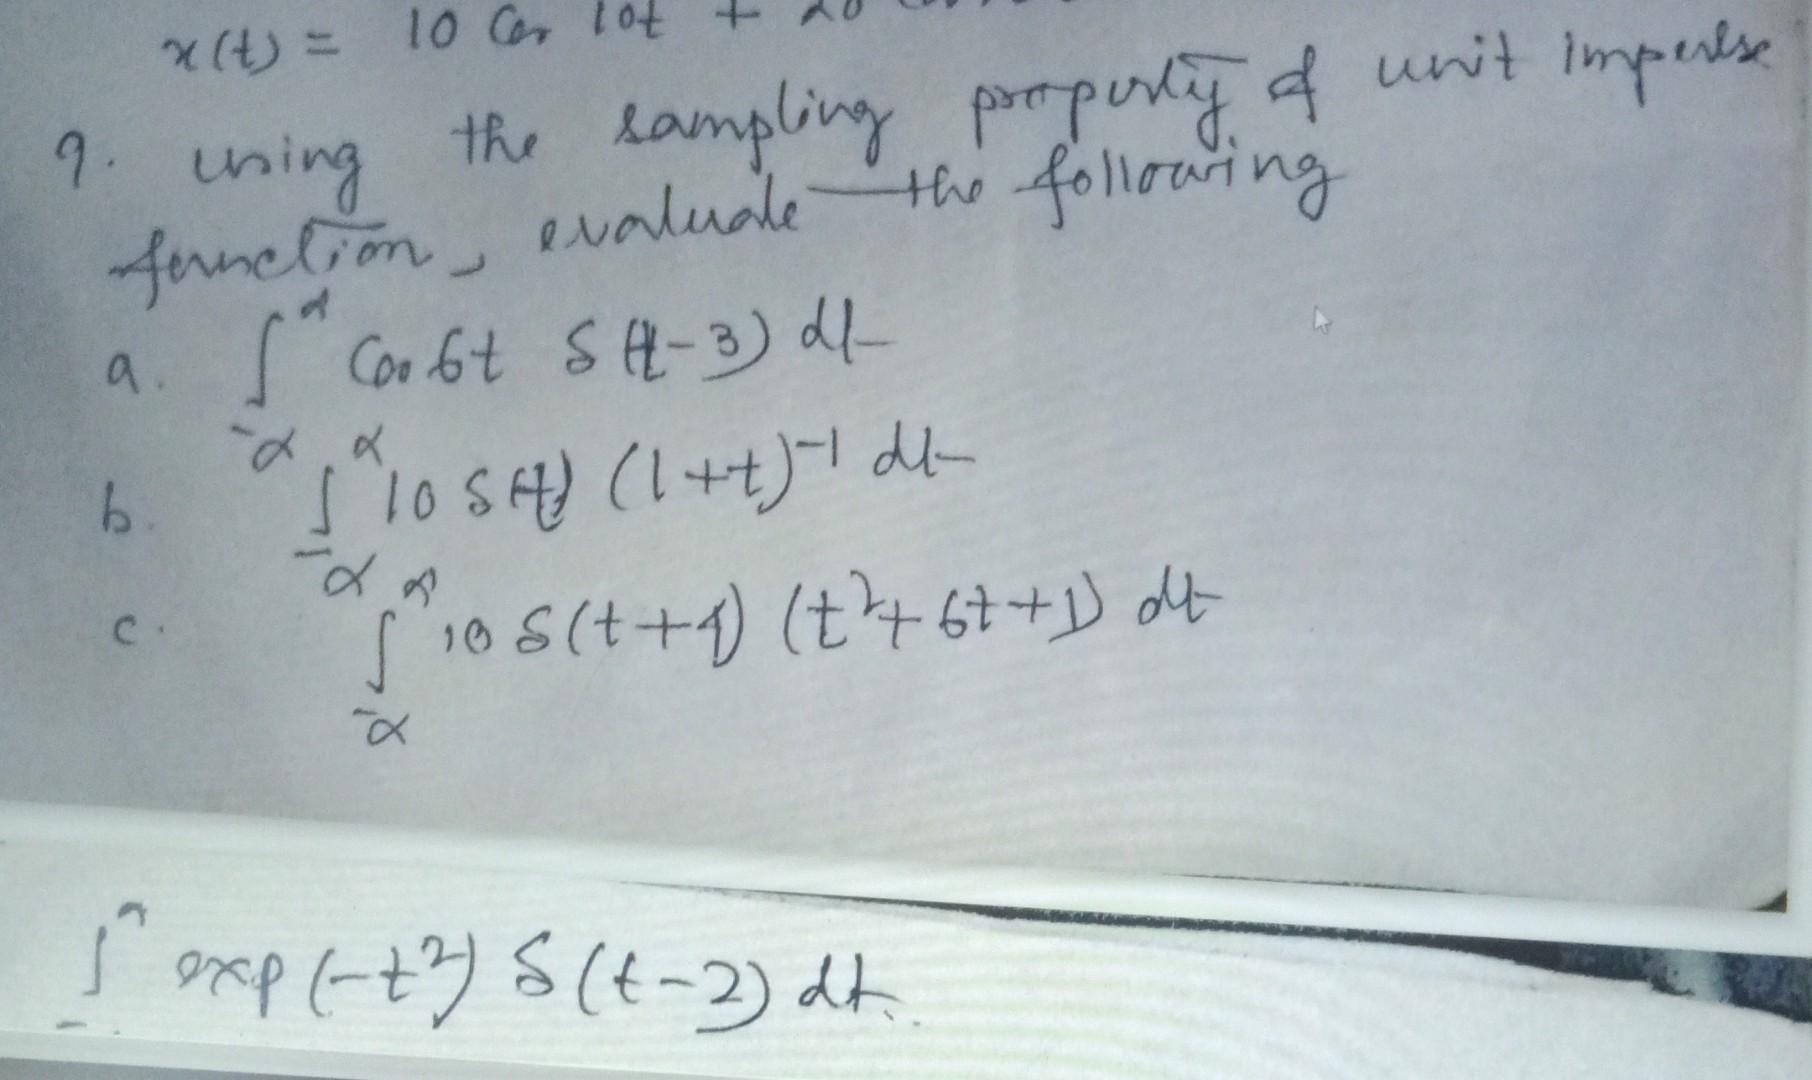 x(t) = 10 Cos 10t + 20
9. using the sampling property of unit impulse
function, evaluate the following
a. ∫_{-α}^{α} Cos 6t δ(t-3) dt
b. ∫_{-α}^{α} 10 δ(t) (1+t)^{-1} dt
c. ∫_{-α}^{α} 10 δ(t+1) (t²+6t+1) dt
∫ exp(-t²) δ(t-2) dt.